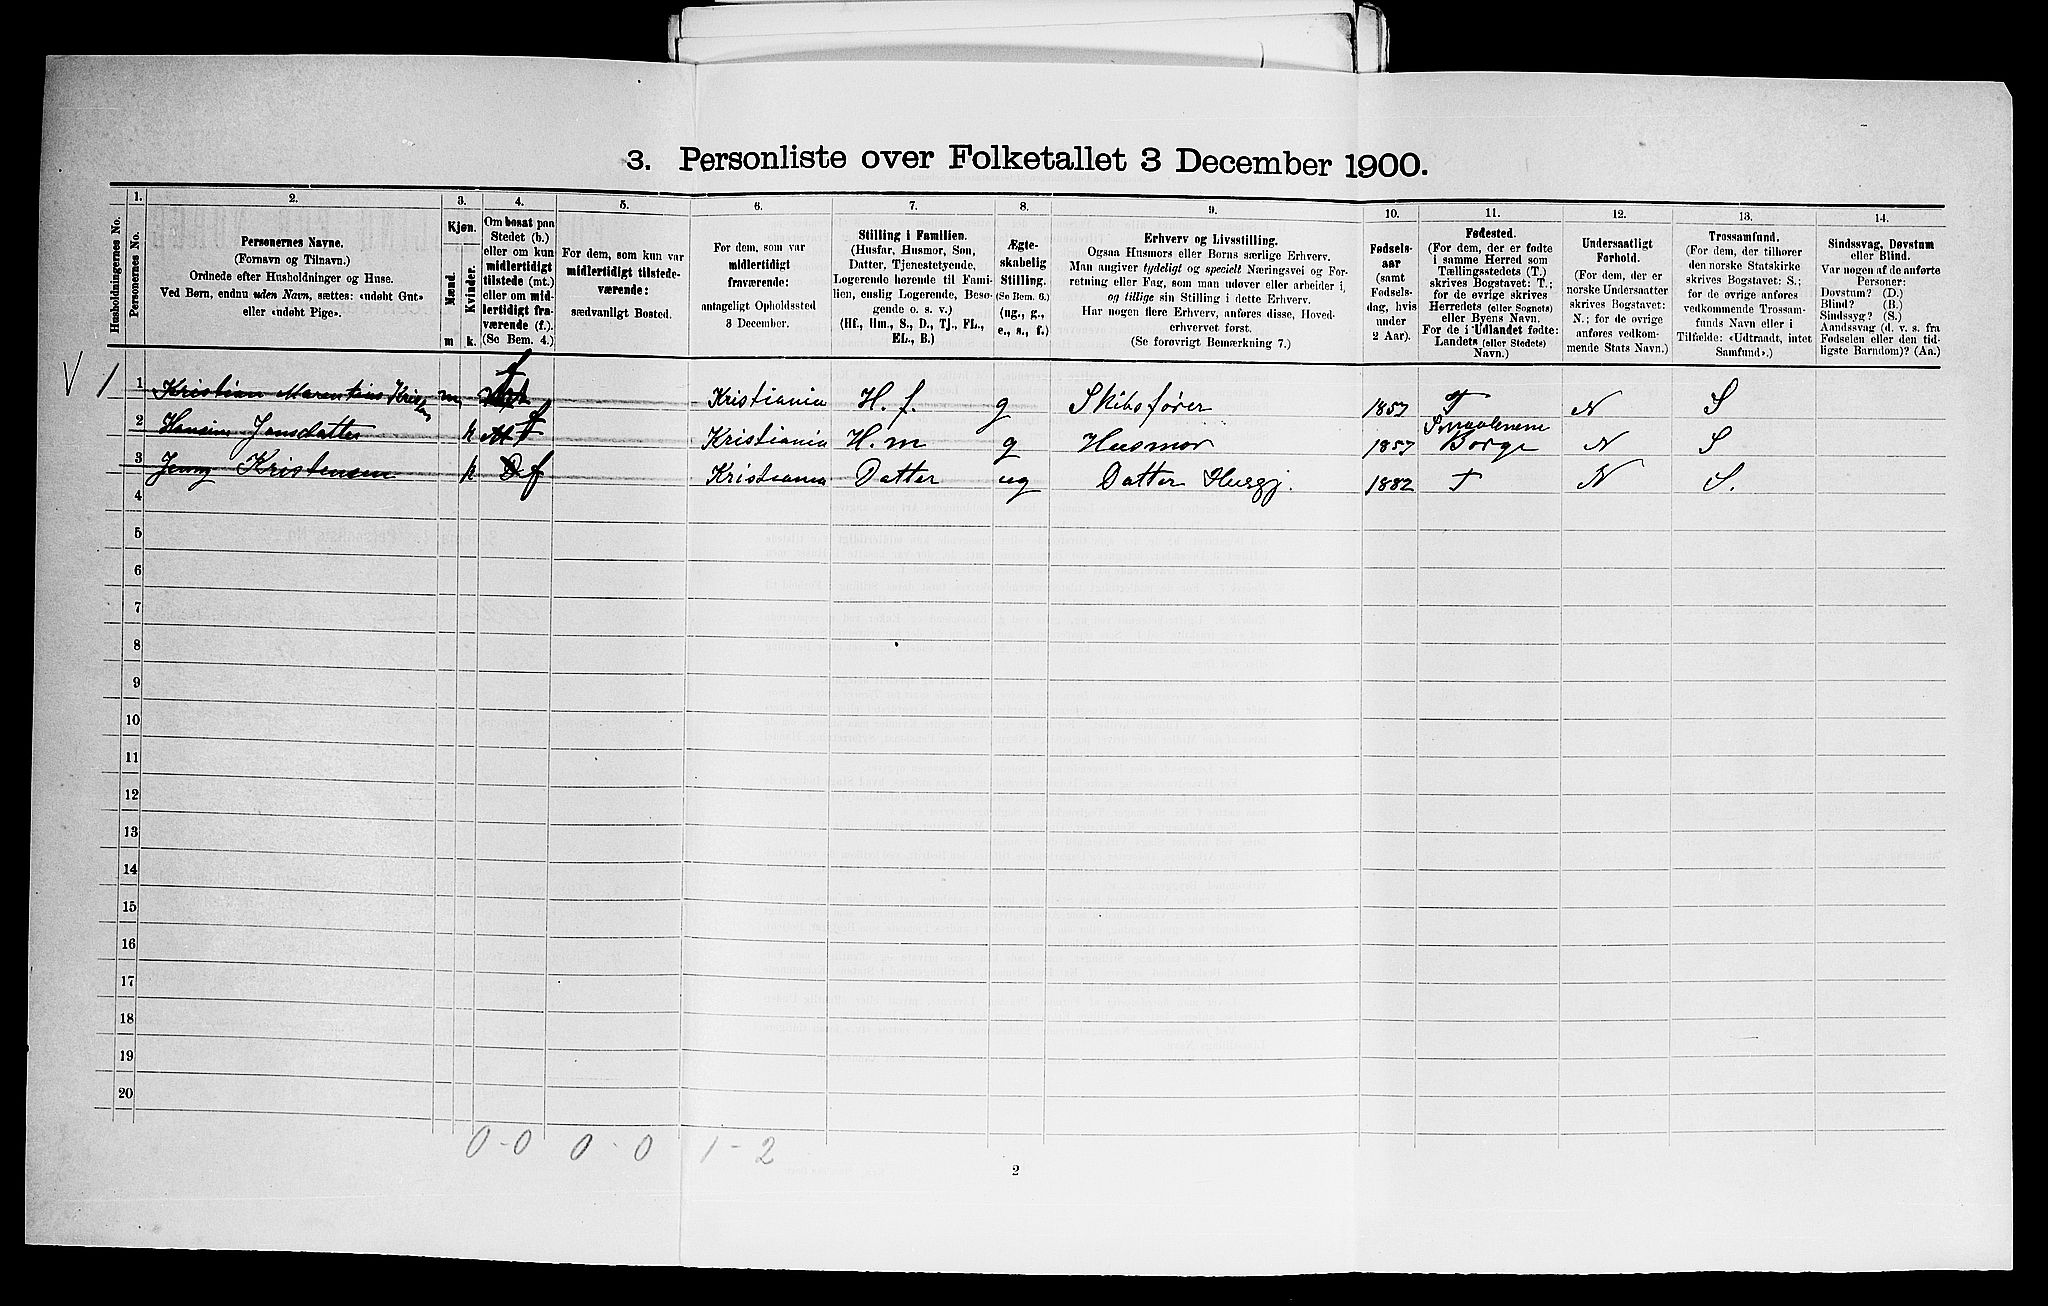 3. Personliste over Folketallet 3 December 1900.
Husholdningernes No.
1.
Personernes No.
2.
Personernes Navne.
(Fornavn og Tilnavn.)
Ordnede efter Husholdninger og Huse.
Ved Børn, endnu uden Navn, sættes: «udøbt Gut»
eller «udøbt Pige».
3.
Kjøn.
Mænd.
Kvinder.
m
k.
4.
Om bosat paa
Stedet (b.)
eller om kun
midlertidigt
tilstede (mt.)
eller om mid-
lertidigt fra-
værende (f.).
(Se Bem. 4.)
5.
For dem, som kun var
midlertidigt tilstede-
værende:
sædvanligt Bosted.
6.
For dem, som var
midlertidigt
fraværende:
antageligt Opholdssted
3 December.
7.
Stilling i Familien.
(Husfar, Husmor, Søn,
Datter, Tjenestetyende,
Logerende hørende til Fami-
lien, enslig Logerende, Besø-
gende o. s. v.)
(Hf., Hm., S., D., Tj., FL.,
EL., B.)
8.
Ægte-
skabelig
Stilling.
(Se Bem. 6.)
(ug., g.,
e., s., f.)
9.
Erhverv og Livsstilling.
Ogsaa Husmors eller Børns særlige Erhverv.
Man angiver tydeligt og specielt Næringsvei og For-
retning eller Fag, som man udøver eller arbeider i,
og tillige sin Stilling i dette Erhverv.
Har nogen flere Erhverv, anføres disse, Hoved-
erhvervet først.
(Se forøvrigt Bemærkning 7.)
10.
Fødsels-
aar
(samt
Fødsels-
dag, hvis
under
2 Aar).
11.
Fødested.
(For dem, der er fødte
i samme Herred som
Tællingsstedets (T.)
skrives Bogstavet: T.;
for de øvrige skrives
Herredets (eller Sognets)
eller Byens Navn.
For de i Udlandet fødte:
Landets (eller Stedets)
Navn.)
12.
Undersaatligt
Forhold.
(For dem, der er
norske Undersaatter
skrives Bogstavet:
N.; for de øvrige
anføres vedkom-
mende Stats Navn.)
13.
Trossamfund.
(For dem, der tilhører
den norske Statskirke
skrives Bogstavet: S.;
for de øvrige anføres
vedkommende Trossam-
funds Navn eller i
Tilfælde: «Udtraadt, intet
Samfund».)
14.
Sindssvag, Døvstum
eller Blind.
Var nogen af de anførte
Personer:
Døvstum? (D.)
Blind? (B.)
Sindssyg? (S.)
Aandssvag (d. v. s. fra
Fødselen eller den tid-
ligste Barndom)? (Aa.)
V 1 1 Kristian Marentius Kristen m f Kristiania H. f. g Skibsfører 1857 T N S
2 Hansine Jansdatter k f Kristiania H. m g Husmor 1857 Smaalenene Borge N S
3 Jenny Kristensen k f Kristiania Datter ug Datter Husgj. 1882 T N S.
4
5
6
7
8
9
10
11
12
13
14
15
16
17
18
19
20
0-0 0-0 1-2
2